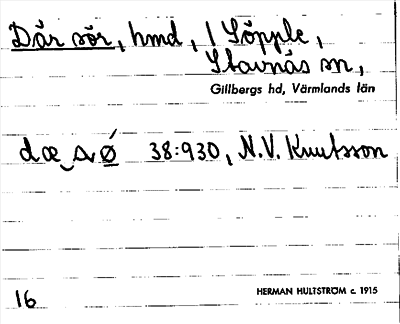 Där sör, hmd, 1 Söpple,
Stavnäs sn,
Gillbergs hd, Värmlands län
38:930, N.V. Knutsson
16
HERMAN HULTSTRÖM c. 1915